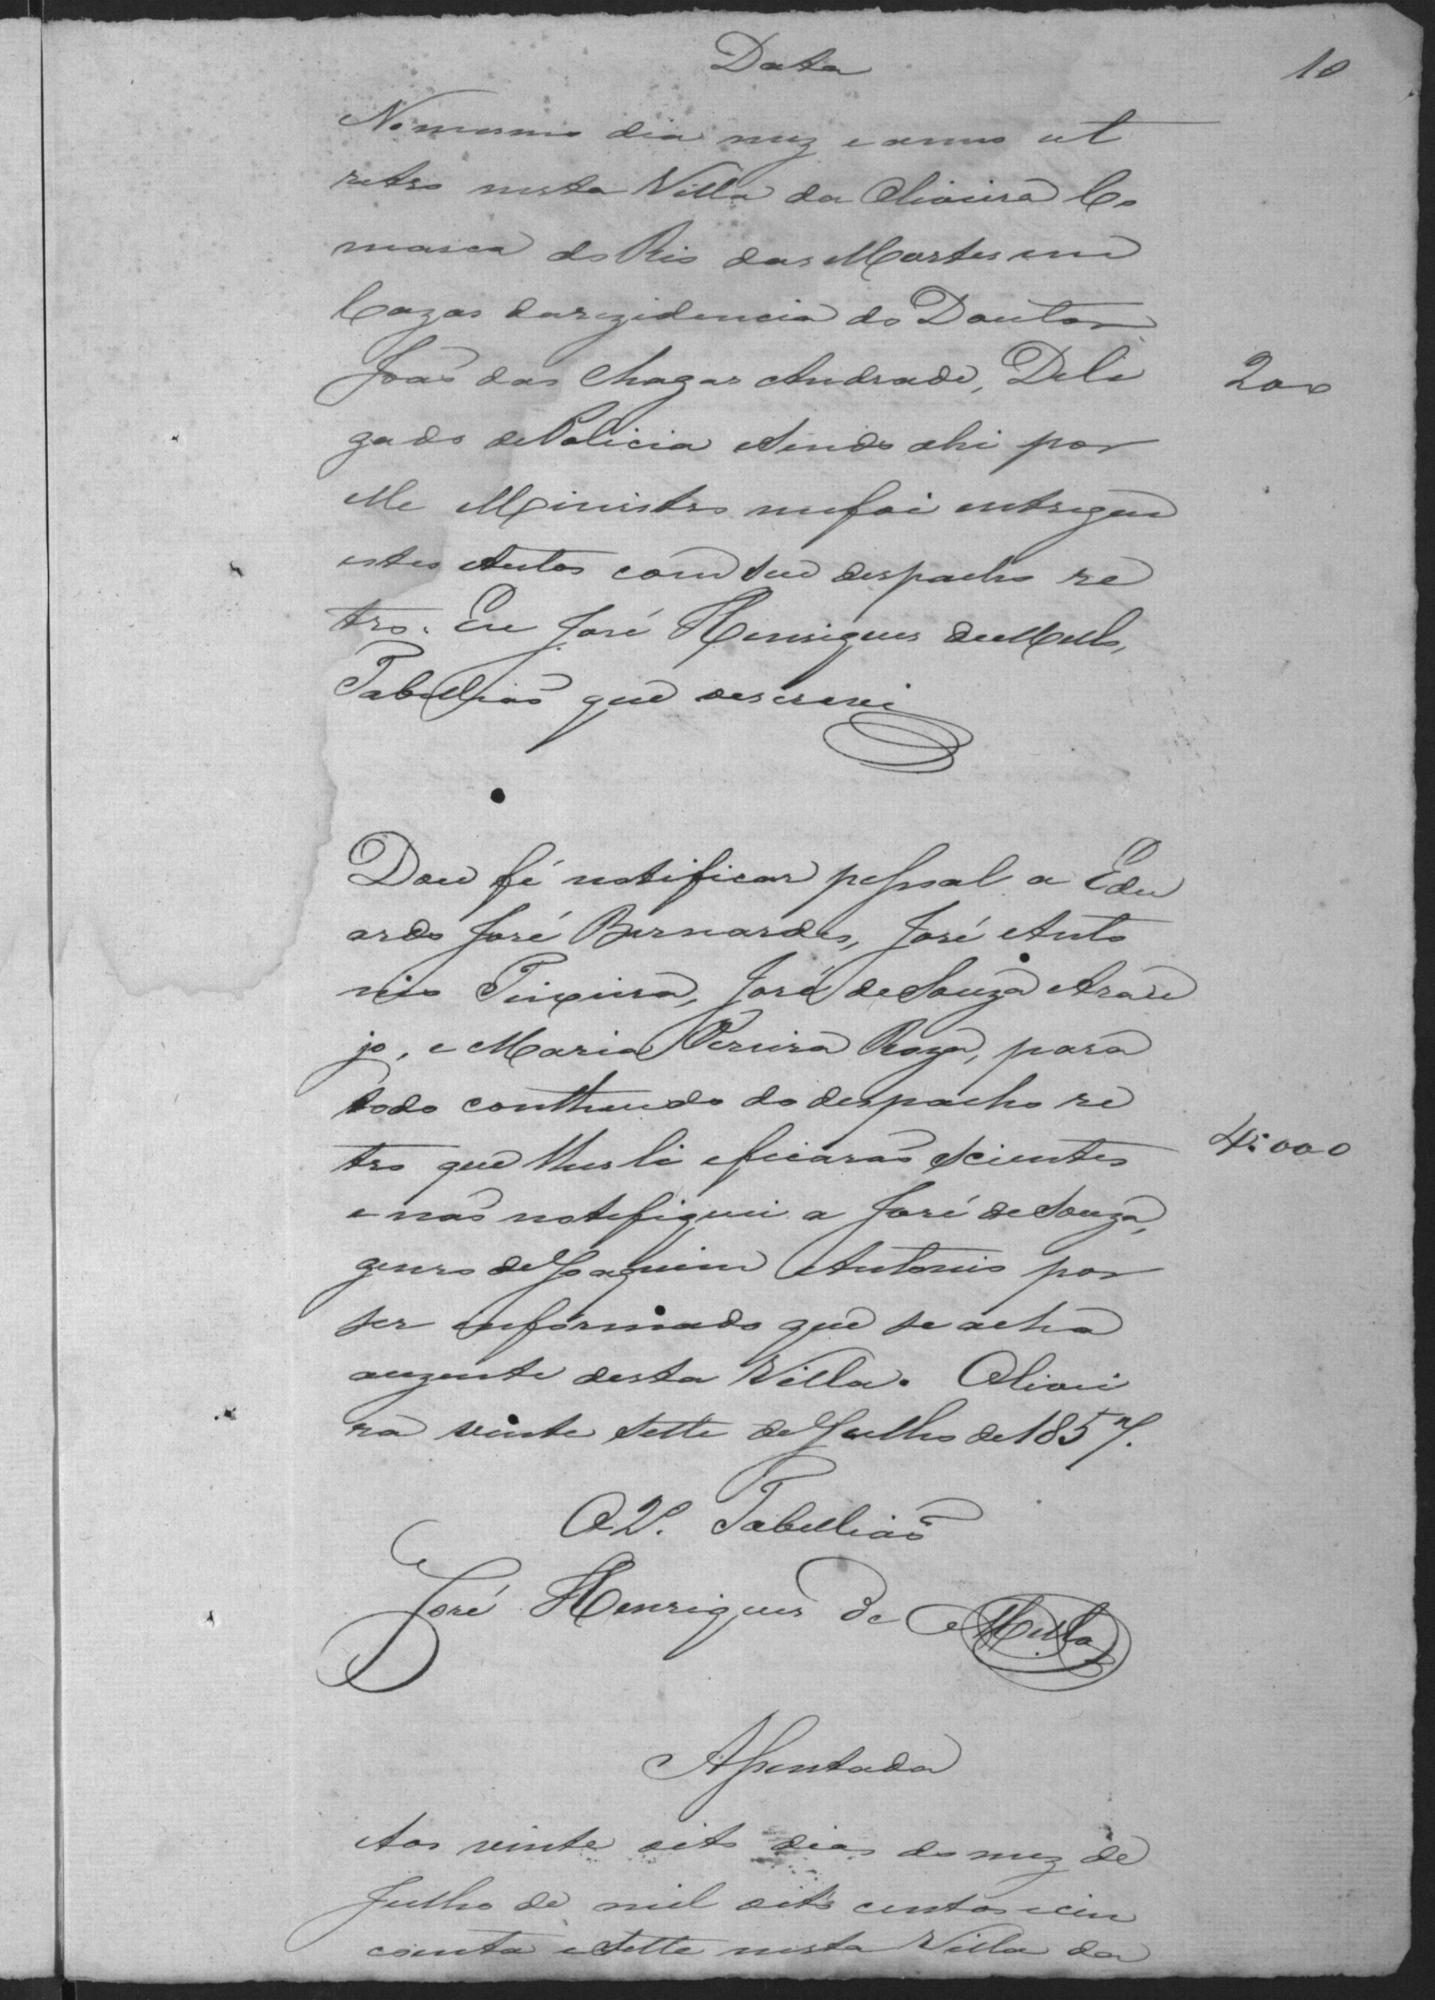 Data
10
No mesmo dia mez e anno ut
retro nesta Villa da Oliveira Co
marca do Rio das Mortes em
Cazas darezidencia do Doutor
João das Chagas Andrade, Dele
200
gado de Policia e sendo ahi por
elle Ministro mefoi entregue
estes Autos com seu despacho re
tro. Eu José Henriques de Mello,
Tabellião que oescrevi
Dou fé notificar pessoal a Edu
ardo José Bernardes, José Anto
nio Teixeira, José de Souza Arau
jo, e Maria Pereira Roza, para
todo contheudo do despacho re
tro que lhes li eficarão scientes
4:000
e não notefiquei a José de Souza,
genro de Joaquim Antonio por
ser enformado que se acha
auzente desta Villa. Olivei
ra vinte sette de Julho de 1857.
O 2º. Tabellião
José Henriques de Mello
Assentada
Aos vinte oito dias do mez de
Julho de mil oito centos ecin
coenta e sette nesta Villa da